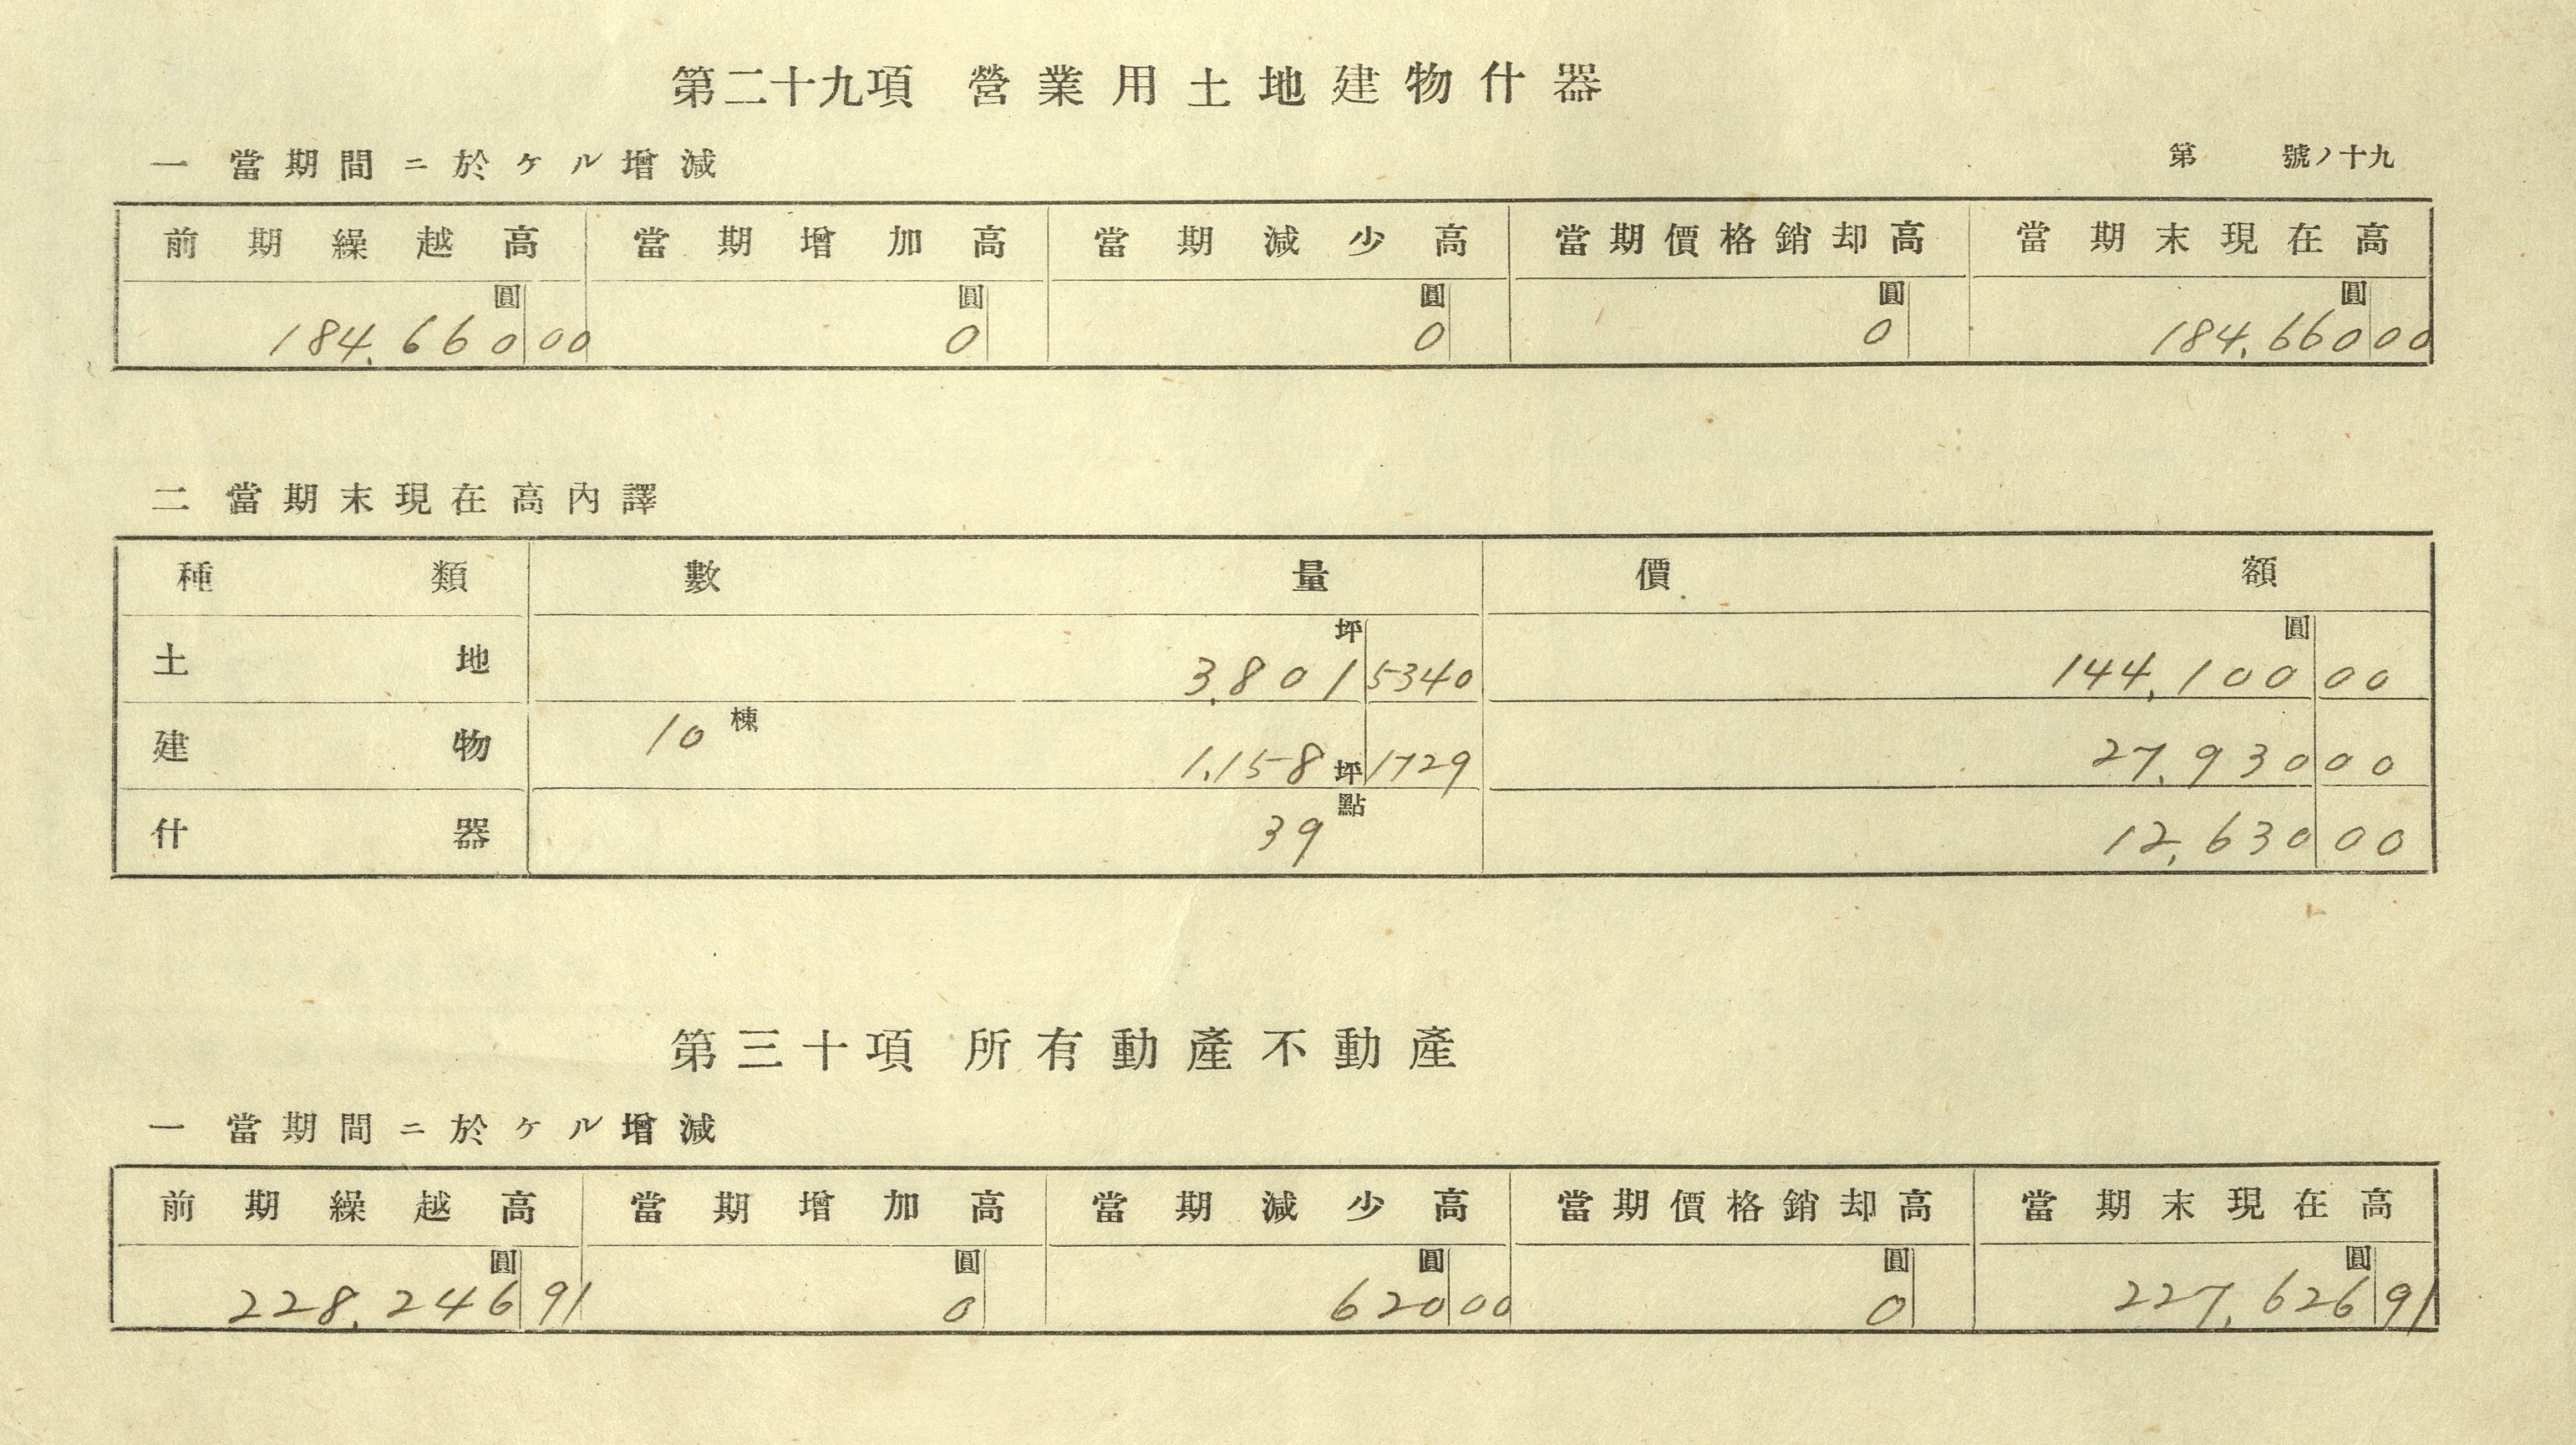 第二十九項 營業用土地建物什器
一 當期間ニ於ケル增減 第 號ノ十九
前期繰越高 當期增加高 當期減少高 當期價格銷却高 當期末現在高
圓 圓 圓 圓 圓
184,660 00 0 0 0 184,660 00
二 當期末現在高內譯
種類 數量 價額
坪 圓
土地 3,801 5340 144,100 00
建物 10棟 1,158坪1729 27,930 00
什器 39點 12,630 00
第三十項 所有動產不動產
一 當期間ニ於ケル增減
前期繰越高 當期增加高 當期減少高 當期價格銷却高 當期末現在高
圓 圓 圓 圓 圓
228,246 91 0 620 00 0 227,626 91